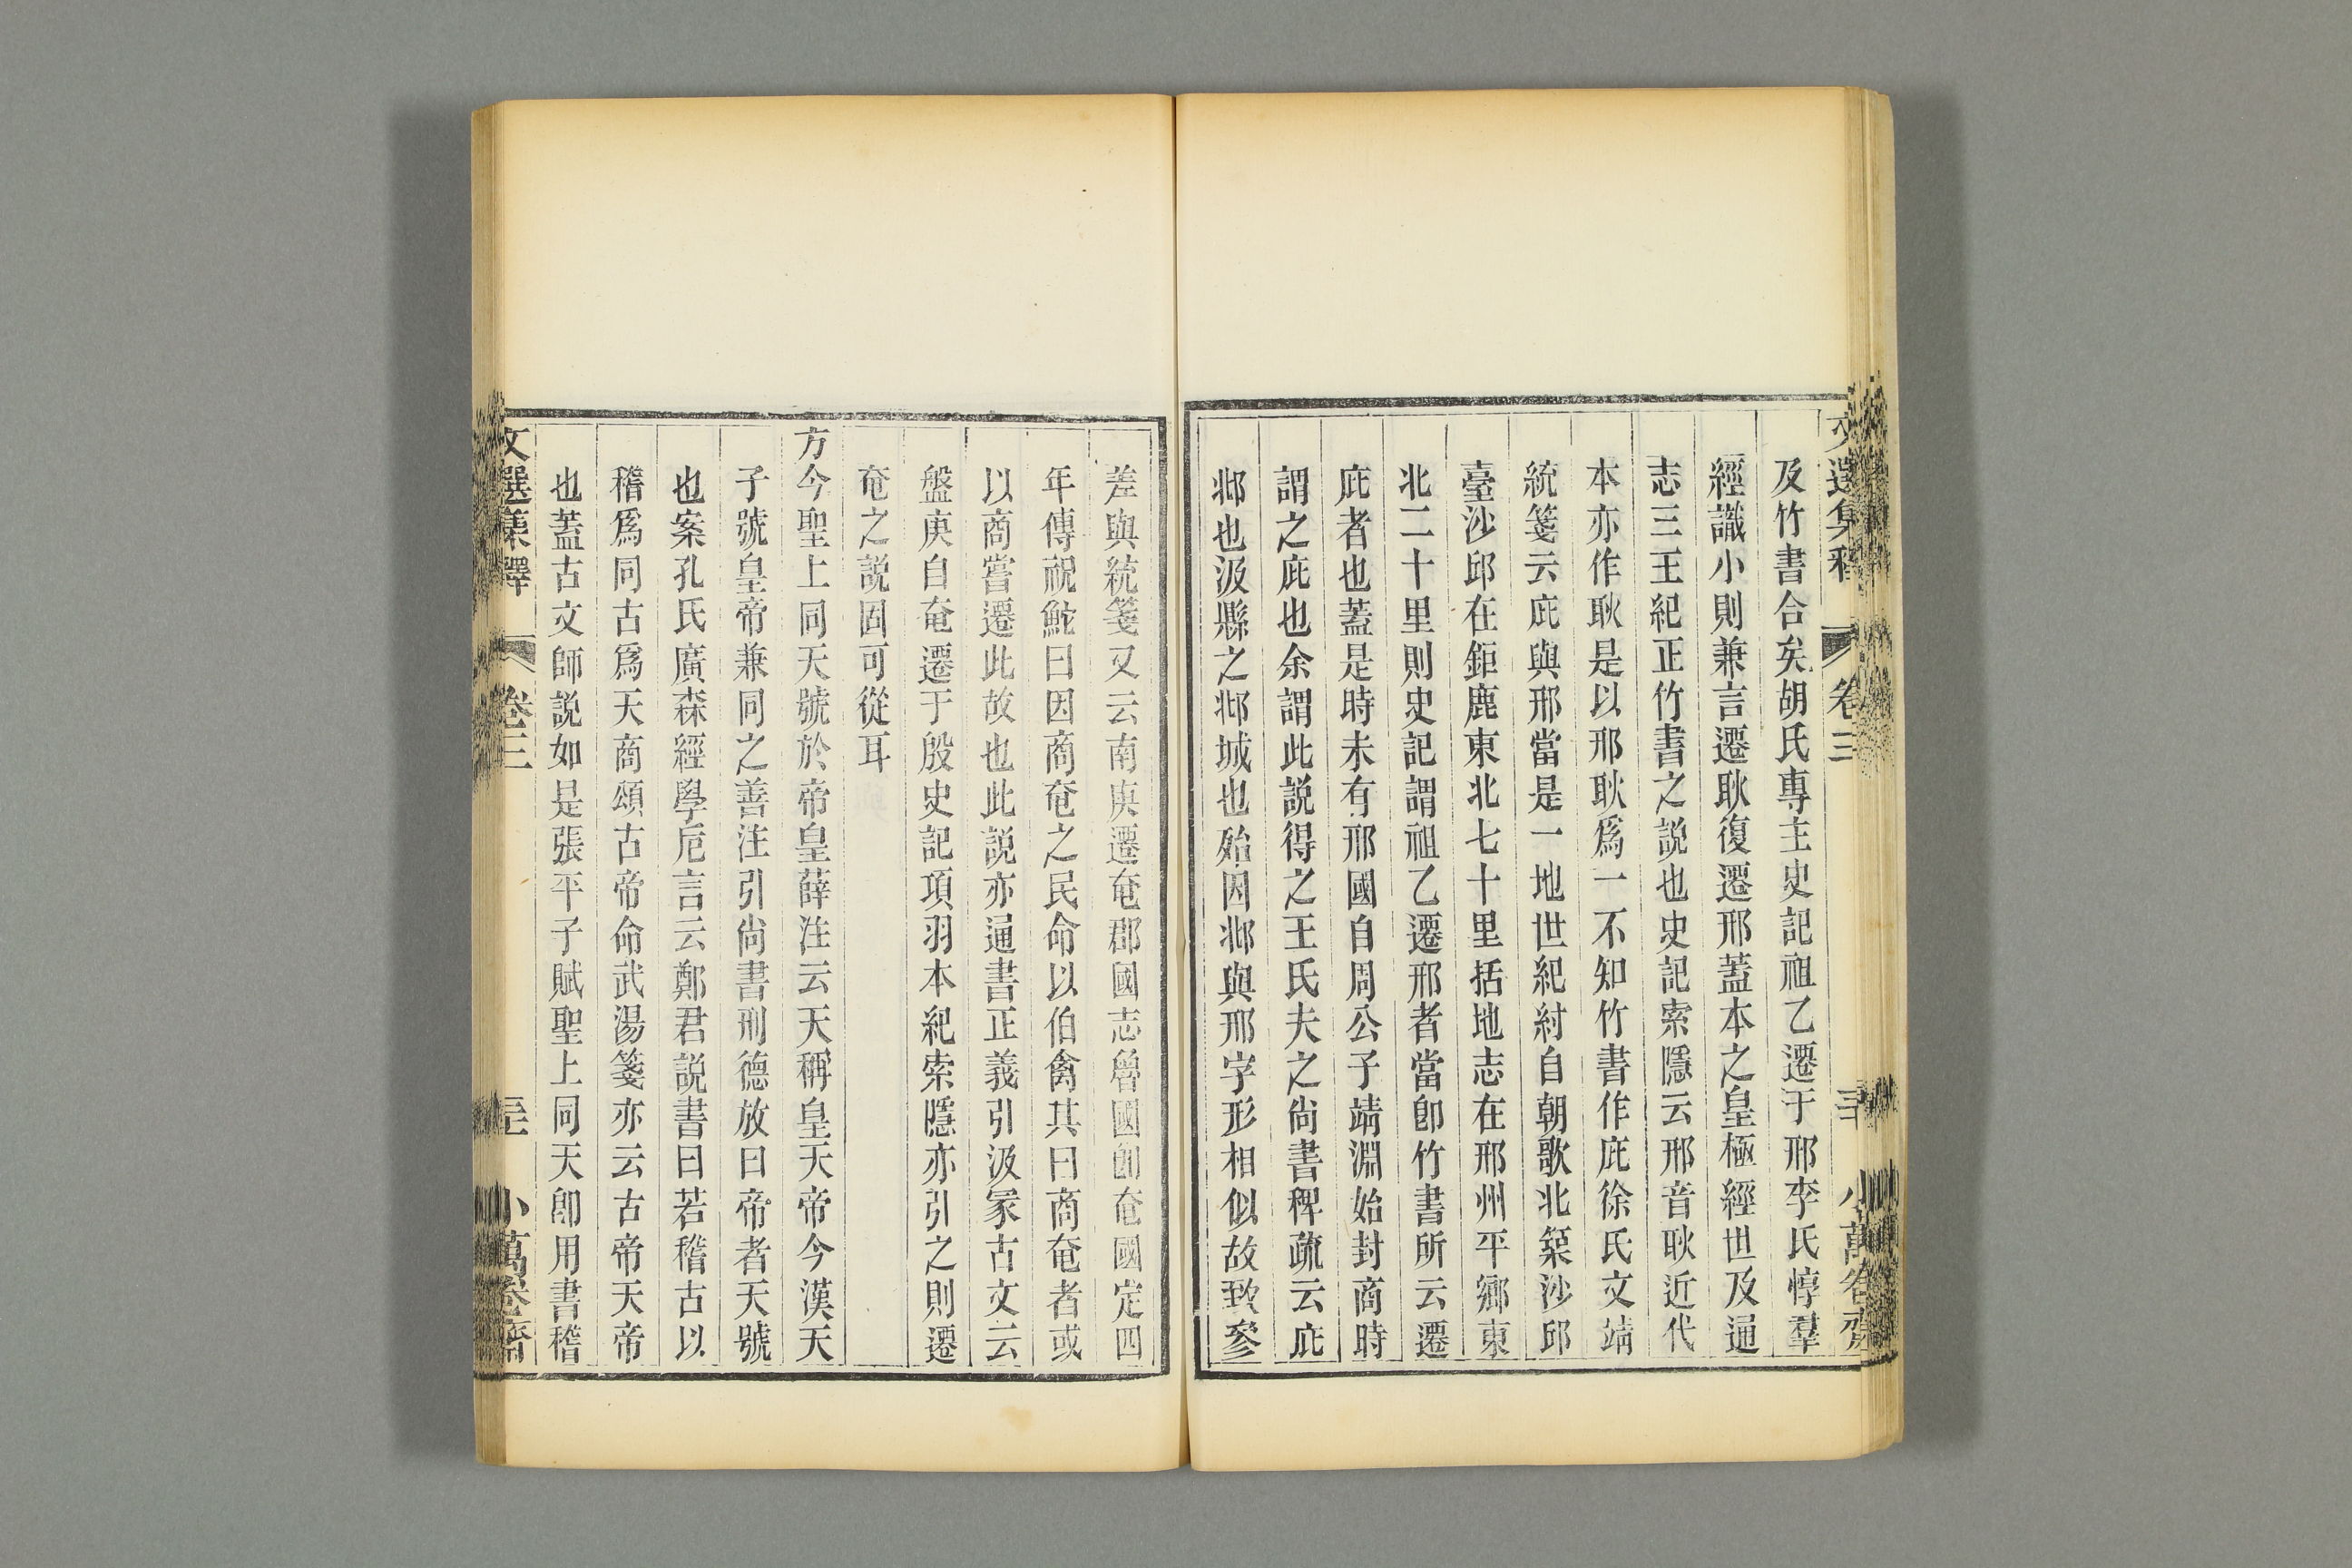 及竹書合矣胡氏專主史記祖乙遷于邢李氏惇羣
經識小則兼言遷耿復遷邢蓋本之皇極經世及通
志三王紀正竹書之說也史記索隱云邢音耿近代
本亦作耿是以邢耿爲一不知竹書作庇徐氏文靖
統箋云庇與邢當是一地世紀紂自朝歌北築沙邱
臺沙邱在鉅鹿東北七十里括地志在邢州平鄉東
北二十里則史記謂祖乙遷邢者當卽竹書所云遷
庇者也蓋是時未有邢國自周公子靖淵始封商時
謂之庇也余謂此說得之王氏夫之尙書稗疏云庇
邶也汲縣之邶城也殆因邶與邢字形相似故致參
差與統箋又云南庚遷奄郡國志魯國卽奄國定四
年傳祝鮀曰因商奄之民命以伯禽其曰商奄者或
以商嘗遷此故也此說亦通書正義引汲冢古文云
盤庚自奄遷于殷史記項羽本紀索隱亦引之則遷
奄之說固可從耳
方今聖上同天號於帝皇薛注云天稱皇天帝今漢天
子號皇帝兼同之善注引尙書刑德放曰帝者天號
也案孔氏廣森經學卮言云鄭君說書曰若稽古以
稽爲同古爲天商頌古帝命武湯箋亦云古帝天帝
也蓋古文師說如是張平子賦聖上同天卽用書稽
文選集釋 卷三 小萬卷齋